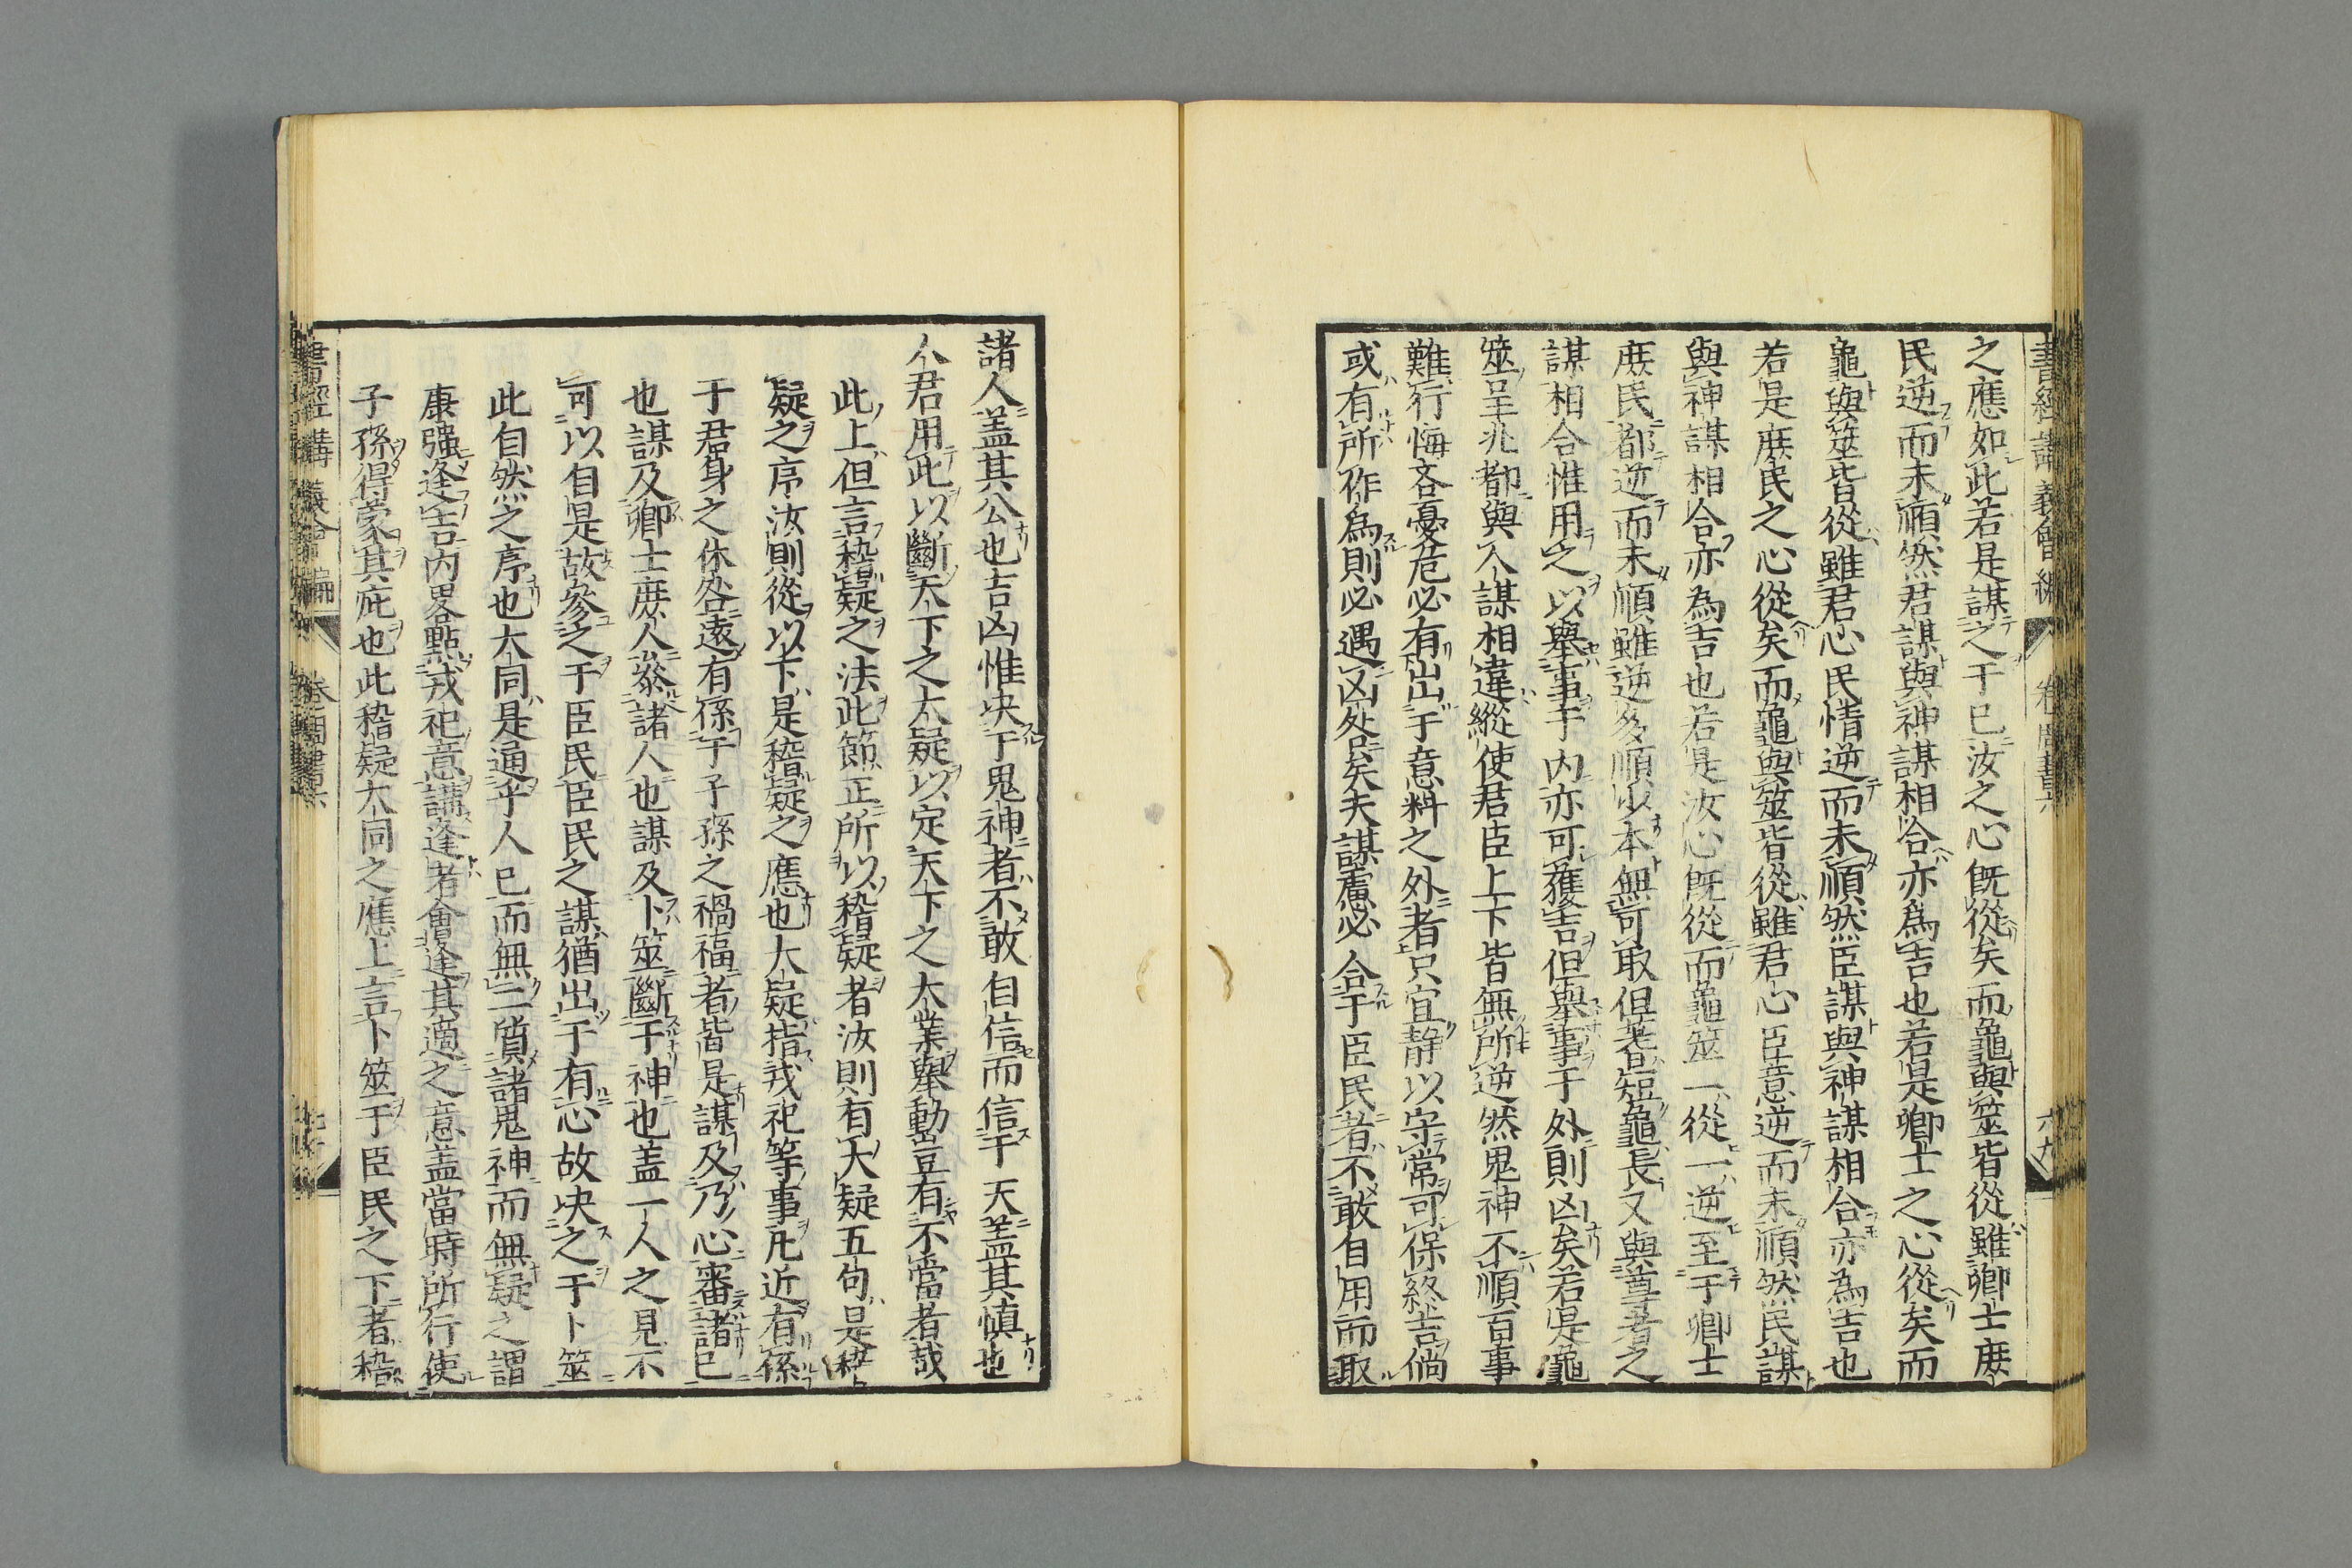 書經講義會編 卷 周書 六十九
之應如此若是謀之于己汝之心既從矣而龜與筮皆從雖卿士庶
民逆而未順然君謀與神謀相合亦爲吉也若是卿士之心從矣而
龜與筮皆從雖君心民情逆而未順然臣謀與神謀相合亦為吉也
若是庶民之心從矣而龜與筮皆從雖君心臣意逆而未順然民謀
與神謀相合亦為吉也若是汝心既從而龜筮一從一逆至于卿士
庶民都逆而未順雖逆多順少本無可取但蓍短龜長又與尊者之
謀相合惟用之以舉事于內亦可獲吉但舉事于外則凶矣若是龜
筮呈兆都與人謀相違縱使君臣上下皆無所逆然鬼神不順百事
難行悔吝憂危必有出于意料之外者只宜静以守常可保終吉倘
或有所作爲則必遇凶咎矣夫謀慮必合于臣民者不敢自用而取
諸人盖其公也吉凶惟决于鬼神者不敢自信而信于天盖其慎也
人君用此以斷天下之大疑以定天下之大業舉動豈有不當者哉
此上但言稽疑之法此節正所以稽疑者汝則有大疑五句是稽
疑之序汝則從以下是稽疑之應也大疑指戎祀等事凡近有係
于君身之休咎遠有係于子孫之禍福者皆是謀及乃心審諸己
也謀及卿士庶人叅諸人也謀及卜筮斷于神也盖一人之見不
可以自是故參之于臣民臣民之謀猶出于有心故决之于卜筮
此自然之序也大同是通乎人己而無二質諸鬼神而無疑之謂
康强逢吉內畧點戎祀意講逢者會逢其適之意盖當時所行使
子孫得蒙其庇也此稽疑大同之應上言卜筮于臣民之下者稽
書經講義會編 卷 周書